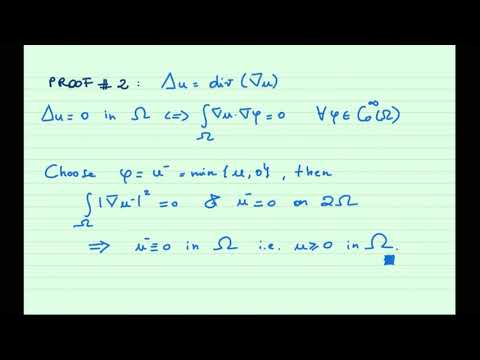 PROOF # 2 : Δu = div (∇u)
Δu = 0 in Ω <=> ∫_Ω ∇u·∇φ = 0 ∀φ ∈ C₀^∞(Ω)
Choose φ = u⁻ = min{u,0}, then
∫_Ω |∇u⁻|² = 0 & u⁻ = 0 on ∂Ω
=> u⁻ ≡ 0 in Ω i.e. u ≥ 0 in Ω.